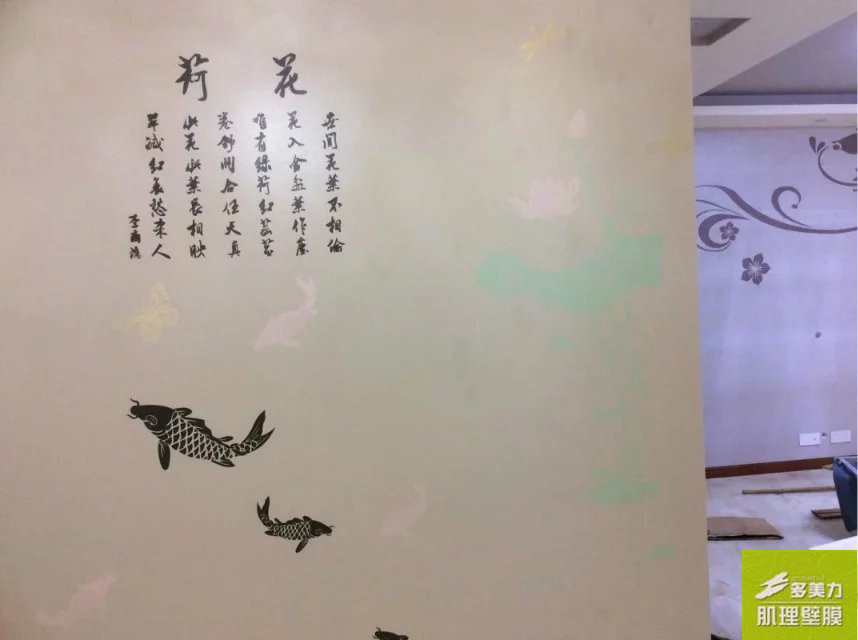 荷花
世间花葉不相倫
花入金盆葉作塵
唯有绿荷红菡萏
卷舒開合任天真
此花此葉長相映
翠减红衰愁杀人
李商隐
多美力
肌理壁膜